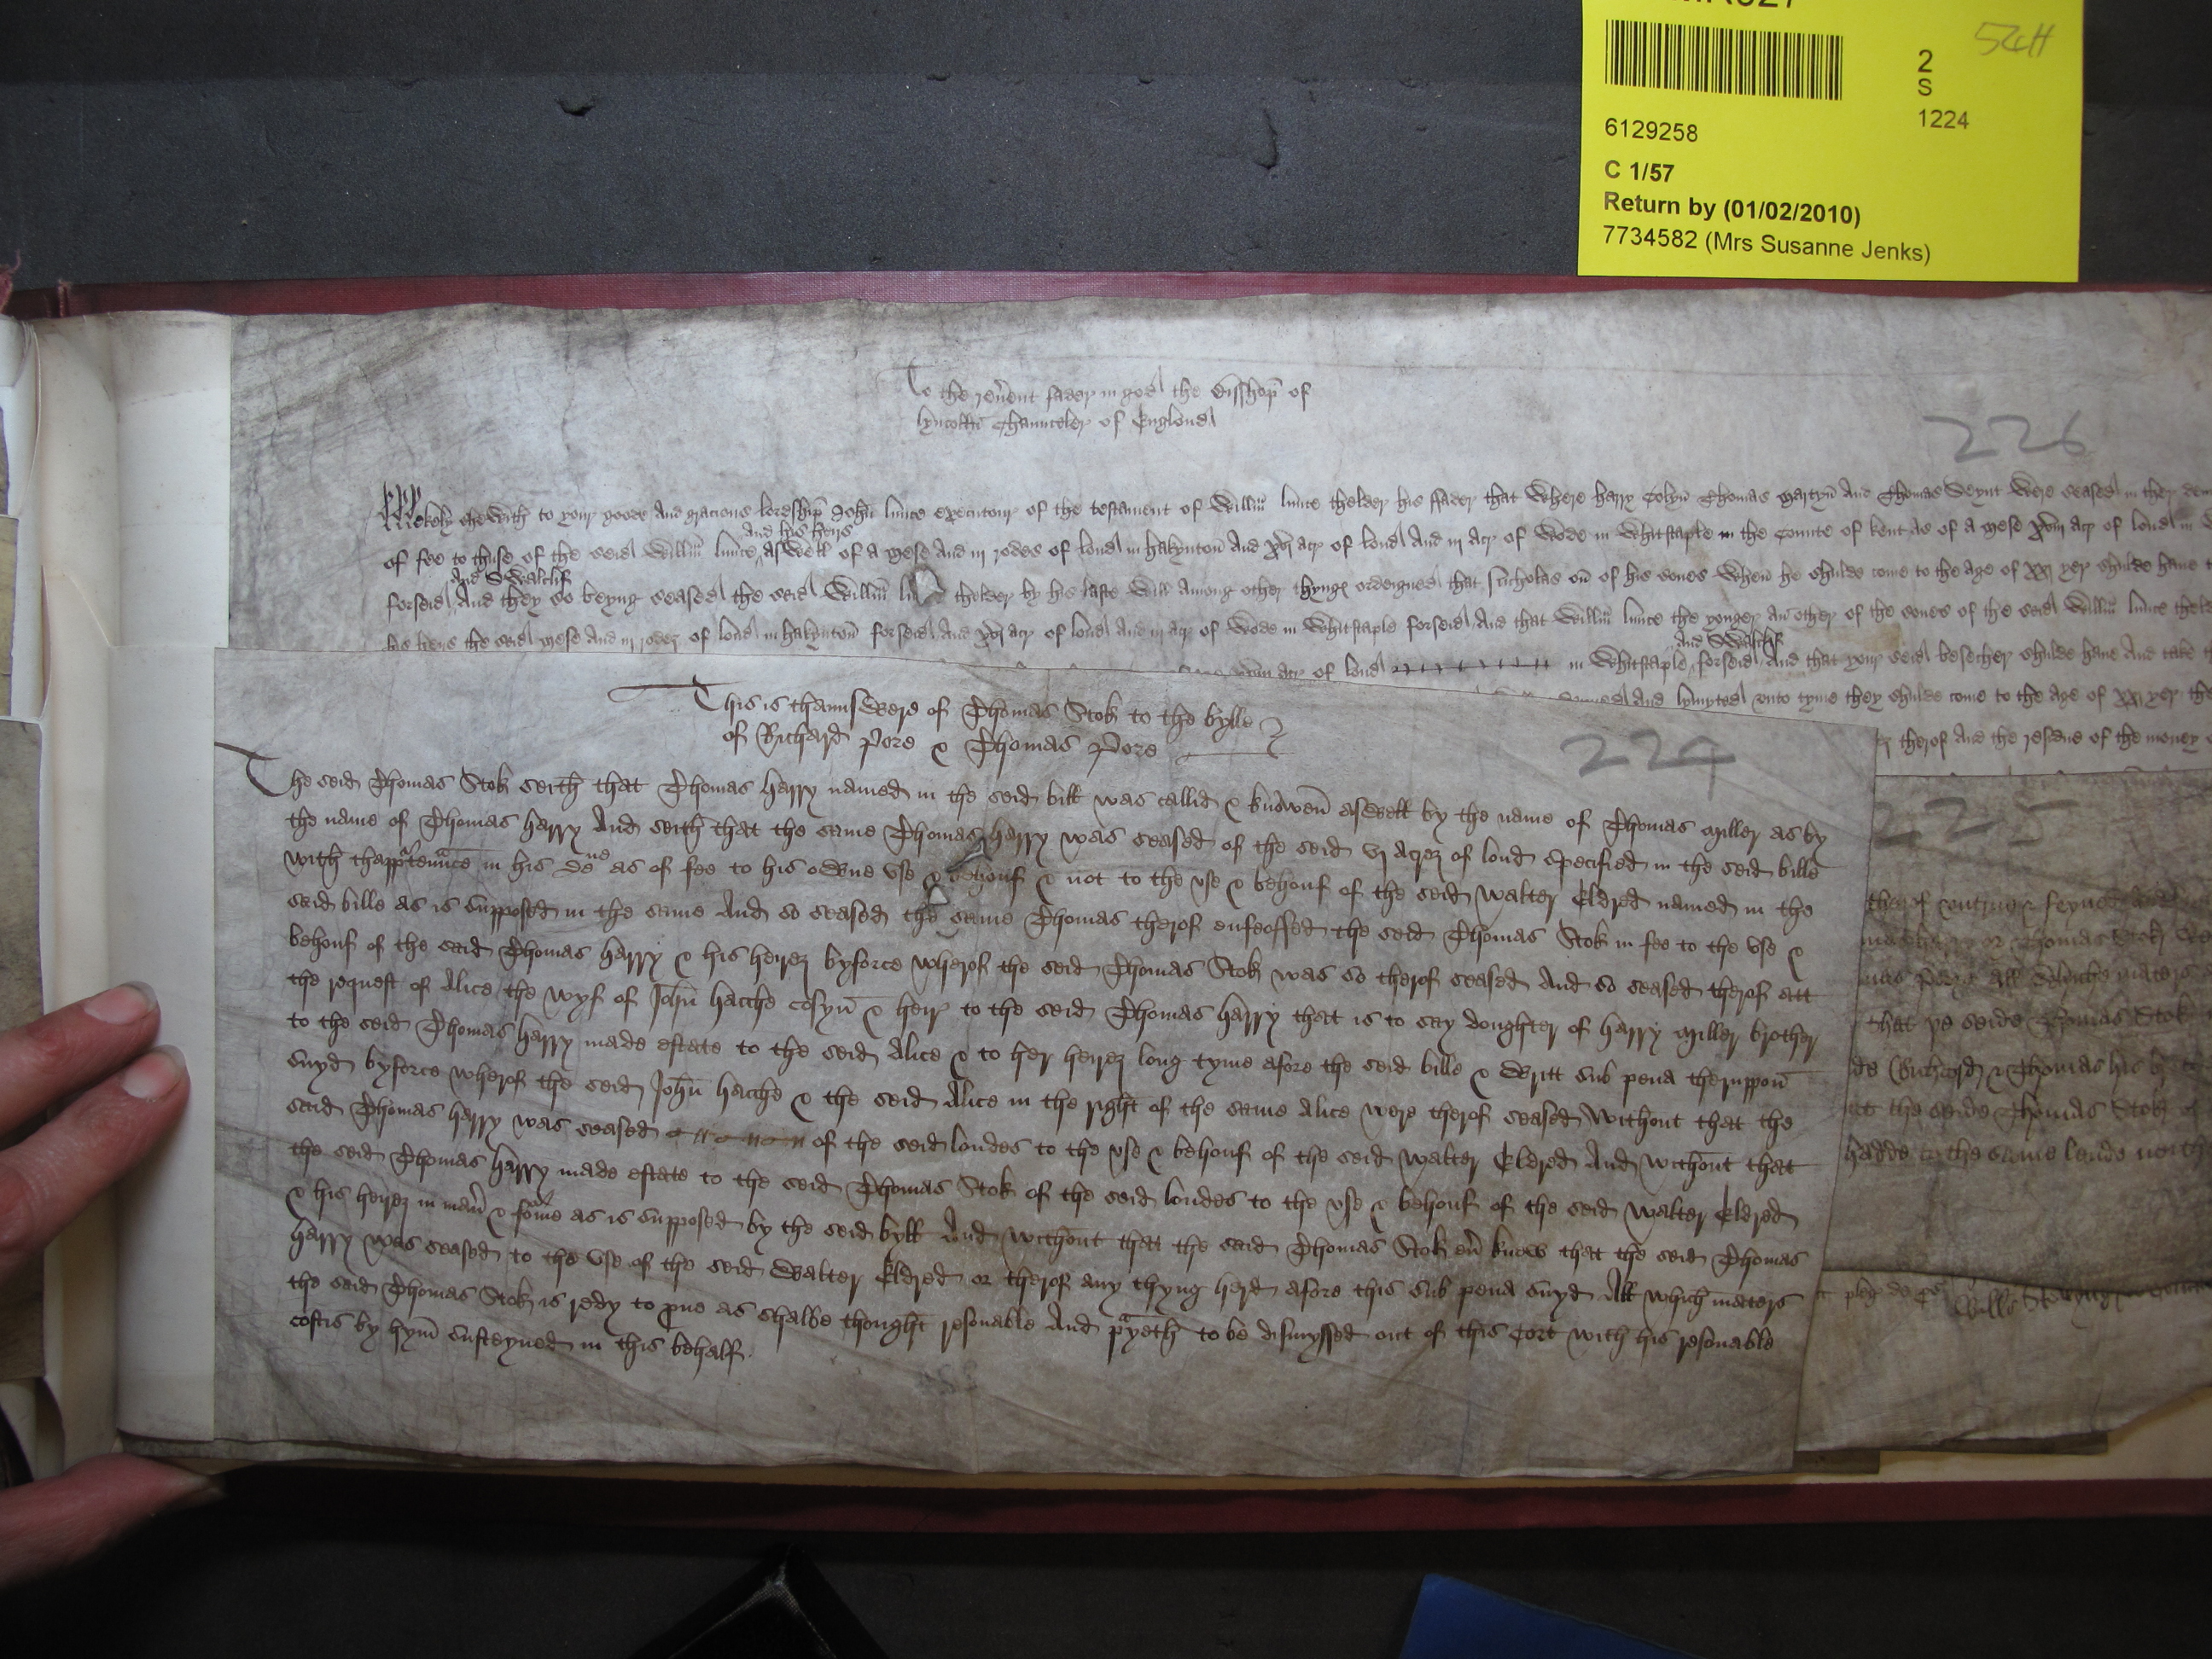 54H
2
S
1224
6129258
C 1/57
Return by (01/02/2010)
7734582 (Mrs Susanne Jenks)
To the reũent fader in god the Bisshop of
lyncolñ Chaunceler of Englond
226
Mekely shewith to your goode And gracious lordship John lunce executour of the testament of Willm̃ lunce thelder his ffader that where harry Colyn̄ Thomas Martyn̄ And Thomas Seynt were seased in ther dem
And his heirs
of fee to thuse of the seid Willm̃ lunce aswell of a mese And iij rodes of lond in hakynton̄ And xvj acr of lond And iij acr of wode in Whitstaple in the Counte of kent As of a mese xviij acr of lond in
And Swalclif
forseid And they so beyng seased the seid Willm̃ thelder by his laste will Among other thyngs ordeigned that Nicholas on̄ of his sones when̄ he shulde come to the age of xxj yer shulde haue
his heirs the seid mese And iij rodes of lond in hakynton̄ forseid And xvj acr of lond And iij acr of wode in Whitstaple forseid And that Willm̃ lunce the yonger an other of the sones of the seid Willm̃ lunce theld
And Swalclif
xviij acr of lond in Whitstaple forseid And that your seid besecher shulde haue And take
And lymyted vnto tyme they shulde come to the age of xxj yer the
therof And the residue of the money
This is thaunswere of Thomas Stok to the bylle
of Richard Pore & Thomas Pore
224
The seid Thomas Stok seith that Thomas harry named in the seid bill was callid & knowen̄ aswell by the name of Thomas Miller as by
the name of Thomas harry And seith that the same Thomas harry was seased of the seid vj Acrez of lond specified in the seid bille
with thapp̃tenñce in his dene as of fee to his owne vse & behouf & not to the vse & behouf of the seid Walter Eldred named in the
seid bille as is supposed in the same And so seased the same Thomas therof enfeoffed the seid Thomas Stok in fee to the vse &
behouf of the seid Thomas harry & his heirez byforce wherof the seid Thomas Stok was so therof seased And so seased therof att
the request of Alice the wyf of John̄ hacche cosyn̄ & heir to the seid Thomas harry that is to sey doughter of harry Miller brother
to the seid Thomas harry made estate to the seid Alice & to her heirez long tyme afore the seid bille & writt sub pena theruppon̄
suyd byforce wherof the seid John̄ hacche & the seid Alice in the right of the same Alice were therof seased Without that the
seid Thomas harry was seased of the seid londes to the vse & behouf of the seid Walter Eldred And without that
the seid Thomas harry made estate to the seid Thomas Stok of the seid londes to the vse & behouf of the seid Walter Eldred
& his heirez in mañ & fourme as is supposed by the seid byll And without that the seid Thomas Stok eũ knew that the seid Thomas
harry was seased to the vse of the seid Walter Eldred or therof any thyng herd afore this sub pena suyd All which maters
the seid Thomas Stok is redy to ꝓue as shalbe thought resonable And prayeth to be dismyssed out of this Cort with his resonable
costis by hym̄ susteyned in this behalf.
225
or Thomas Stok
maters
that þe seide Thomas Stok
Richard & Thomas his
the seide Thomas Stok
hadde in the same londe
pleg de ꝓs Wills